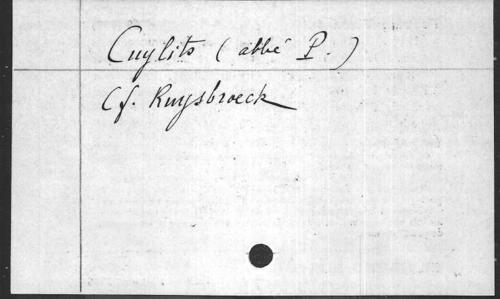 Cuylits (abbé P.)
Cf. Ruysbroeck